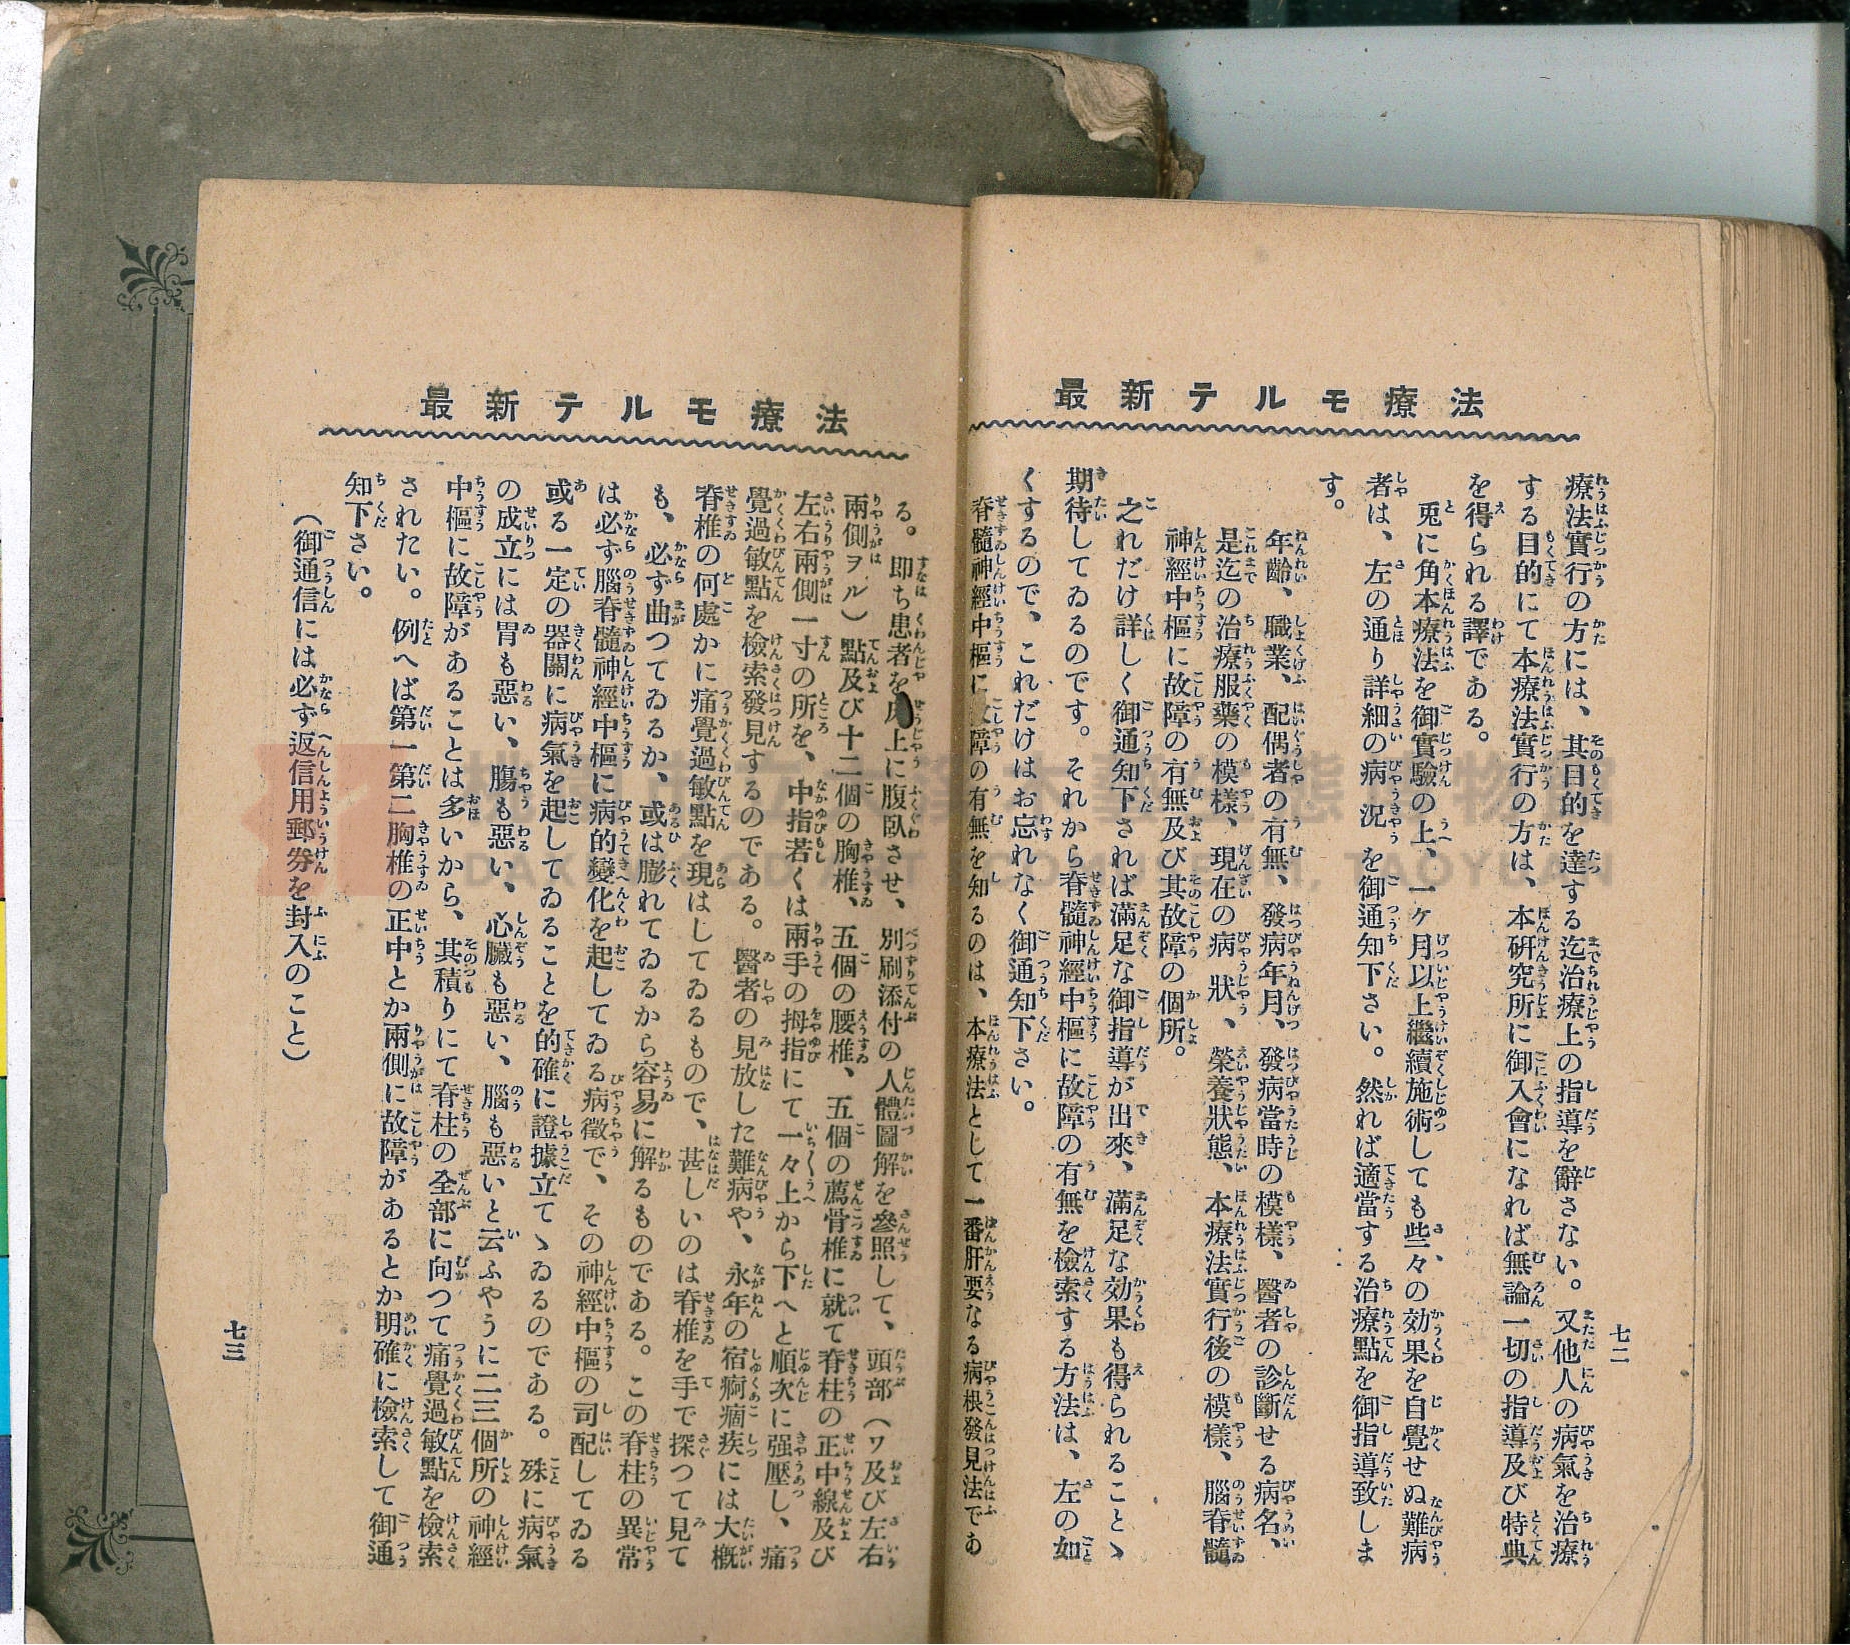 最新テルモ療法
療法實行の方には、其目的を達する迄治療上の指導を辭さない。又他人の病氣を治療
する目的にて本療法實行の方は、本研究所に御入會になれば無論一切の指導及び特典
を得られる譯である。
兎に角本療法を御實驗の上、一ヶ月以上繼續施術しても些々の効果を自覺せぬ難病
者は、左の通り詳細の病況を御通知下さい。然れば適當する治療點を御指導致しま
す。
年齡、職業、配偶者の有無、發病年月、發病當時の模樣、醫者の診斷せる病名、
是迄の治療服藥の模樣、現在の病狀、榮養狀態、本療法實行後の模樣、腦脊髓
神經中樞に故障の有無及び其故障の個所。
之れだけ詳しく御通知下されば滿足な御指導が出來、滿足な効果も得られることゝ
期待してゐるのです。それから脊髓神經中樞に故障の有無を檢索する方法は、左の如
くするので、これだけはお忘れなく御通知下さい。
脊髓神經中樞に障の有無を知るのは、本療法として一番肝要なる病根發見法であ
七二
最新テルモ療法
る。卽ち患者を上に腹臥させ、別刷添付の人體圖解を參照して、頭部（ワ及び左右
兩側ヲル）點及び十二個の胸椎、五個の腰椎、五個の薦骨椎に就て脊柱の正中線及び
左右兩側一寸の所を、中指若くは兩手の拇指にて一々上から下へと順次に强壓し、痛
覺過敏點を檢索發見するのである。醫者の見放した難病や、永年の宿痾痼疾には大槪
脊椎の何處かに痛覺過敏點を現はしてゐるもので、甚しいのは脊椎を手で探つて見て
も、必ず曲つてゐるか、或は膨れてゐるから容易に解るものである。この脊柱の異常
は必ず腦脊髓神經中樞に病的變化を起してゐる病徵で、その神經中樞の司配してゐる
或る一定の器關に病氣を起してゐることを的確に證據立てゝゐるのである。殊に病氣
の成立には胃も惡い、腸も惡い、心臟も惡い、腦も惡いと云ふやうに二三個所の神經
中樞に故障があることは多いから、其積りにて脊柱の全部に向つて痛覺過敏點を檢索
されたい。例へば第一第二胸椎の正中とか兩側に故障があるとか明確に檢索して御通
知下さい。
（御通信には必ず返信用郵券を封入のこと）
七三